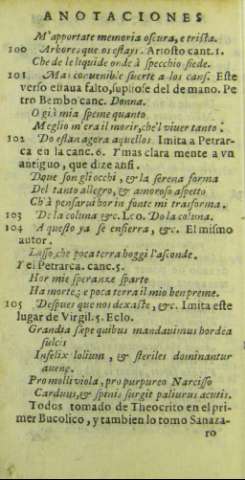 ANOTACIONES
M'apportate memoria oscura, e trista.
100 Arboresque os estays. Ariosto cant. 1.
Che de le liquide onde à specchio siede.
101 Mas conuenible suerte a los cans. Este
verso estaua falto, supliose del de mano. Pe
tro Bembo canc. Donna.
O già mia speme quanto
Meglio m'era il morir, che'l viuer tanto.
102 Do estan agora aquellos. Imita a Petrar-
ca en la canc. 6. Y mas clara mente a vn
antiguo, que dize ansi.
Dque son gli occhi, & la serena forma
Del tanto allegro, & amoroso aspetto
Ch'à pensarui hor in fonte mi trasforma.
103 De la coluna &c. Leo. Do la coluna.
104 A questo ya se enfierra, &c. El mismo
autor.
Lasso, che poca terra hoggi l'asconde.
Y el Petrarca. canc. 5.
Hor mie speranze sparte
Ha morte; e poca terra il mio ben preme.
105 Despues que nos dexaste, &c. Imita este
lugar de Virgil. 5. Eclo.
Grandia sæpe quibus mandauimus hordea
sulcis
Infelix lolium, & steriles dominantur
auenæ.
Pro molli viola, pro purpureo Narcisso
Carduus, & spinis surgit paliurus acutis.
Todos tomado de Theocrito en el pri-
mer Bucolico, y tambien lo tomo Sanaza-
ro